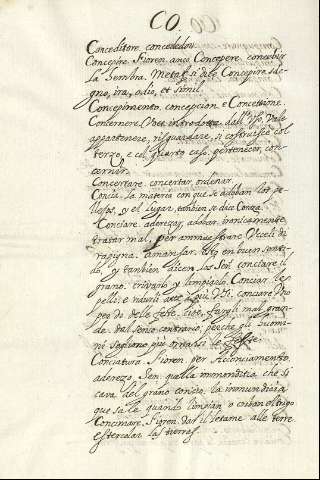 CO
Conceditore, concededor.
Concepire. Fioren. anco Concepere, concebir
la hembra. Metaf. si dice Concepire sde-
gno, ira, odio, et simil.
Concepimento, concepcion e Concezione.
Concernere. Voce introdotta dall'uso. Vale
appartenere, riguardare, si costruisce col
terzo, e col quarto caso, pertenecer, con-
cernir.
Concertare, concertar, ordenar.
Concia, la materia con que se adoban los
y el lugar, tambien se dice Conza.
Conciare, aderezar, adobar, ironicamente
tratar mal, per ammaestrare Uccelli di
rapigna. Amansar. Usa en buen
do, y tambien dicen los Sen. conciare il
grano, crivarlo y limpiarlo. Conciar le
pelli, e
do delle feste, cioè, fargli mal gran-
de, dal senso contrario, perchè gli huomi-
ni sogliano più ornarsi le feste.
Conciatura. Fioren. per Acconciamento,
aderezo, Sen. quella immondizia che si
cava del grano concio, la immundicia
que sale quando limpian o criban el trigo
Concimare. Fioren. dar il letame alle terre
estercolar las tierras